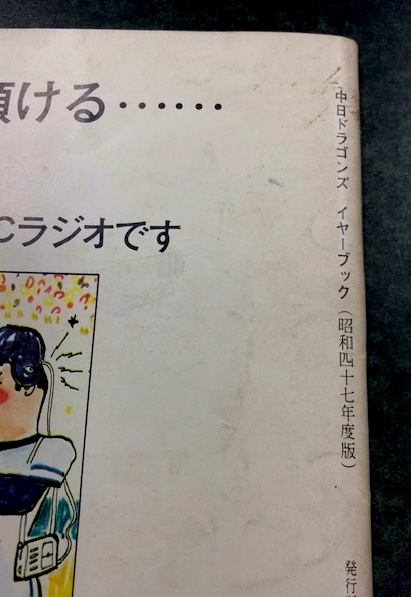 傾ける……
Cラジオです
中日ドラゴンズ イヤーブック(昭和四十七年度版)
発行